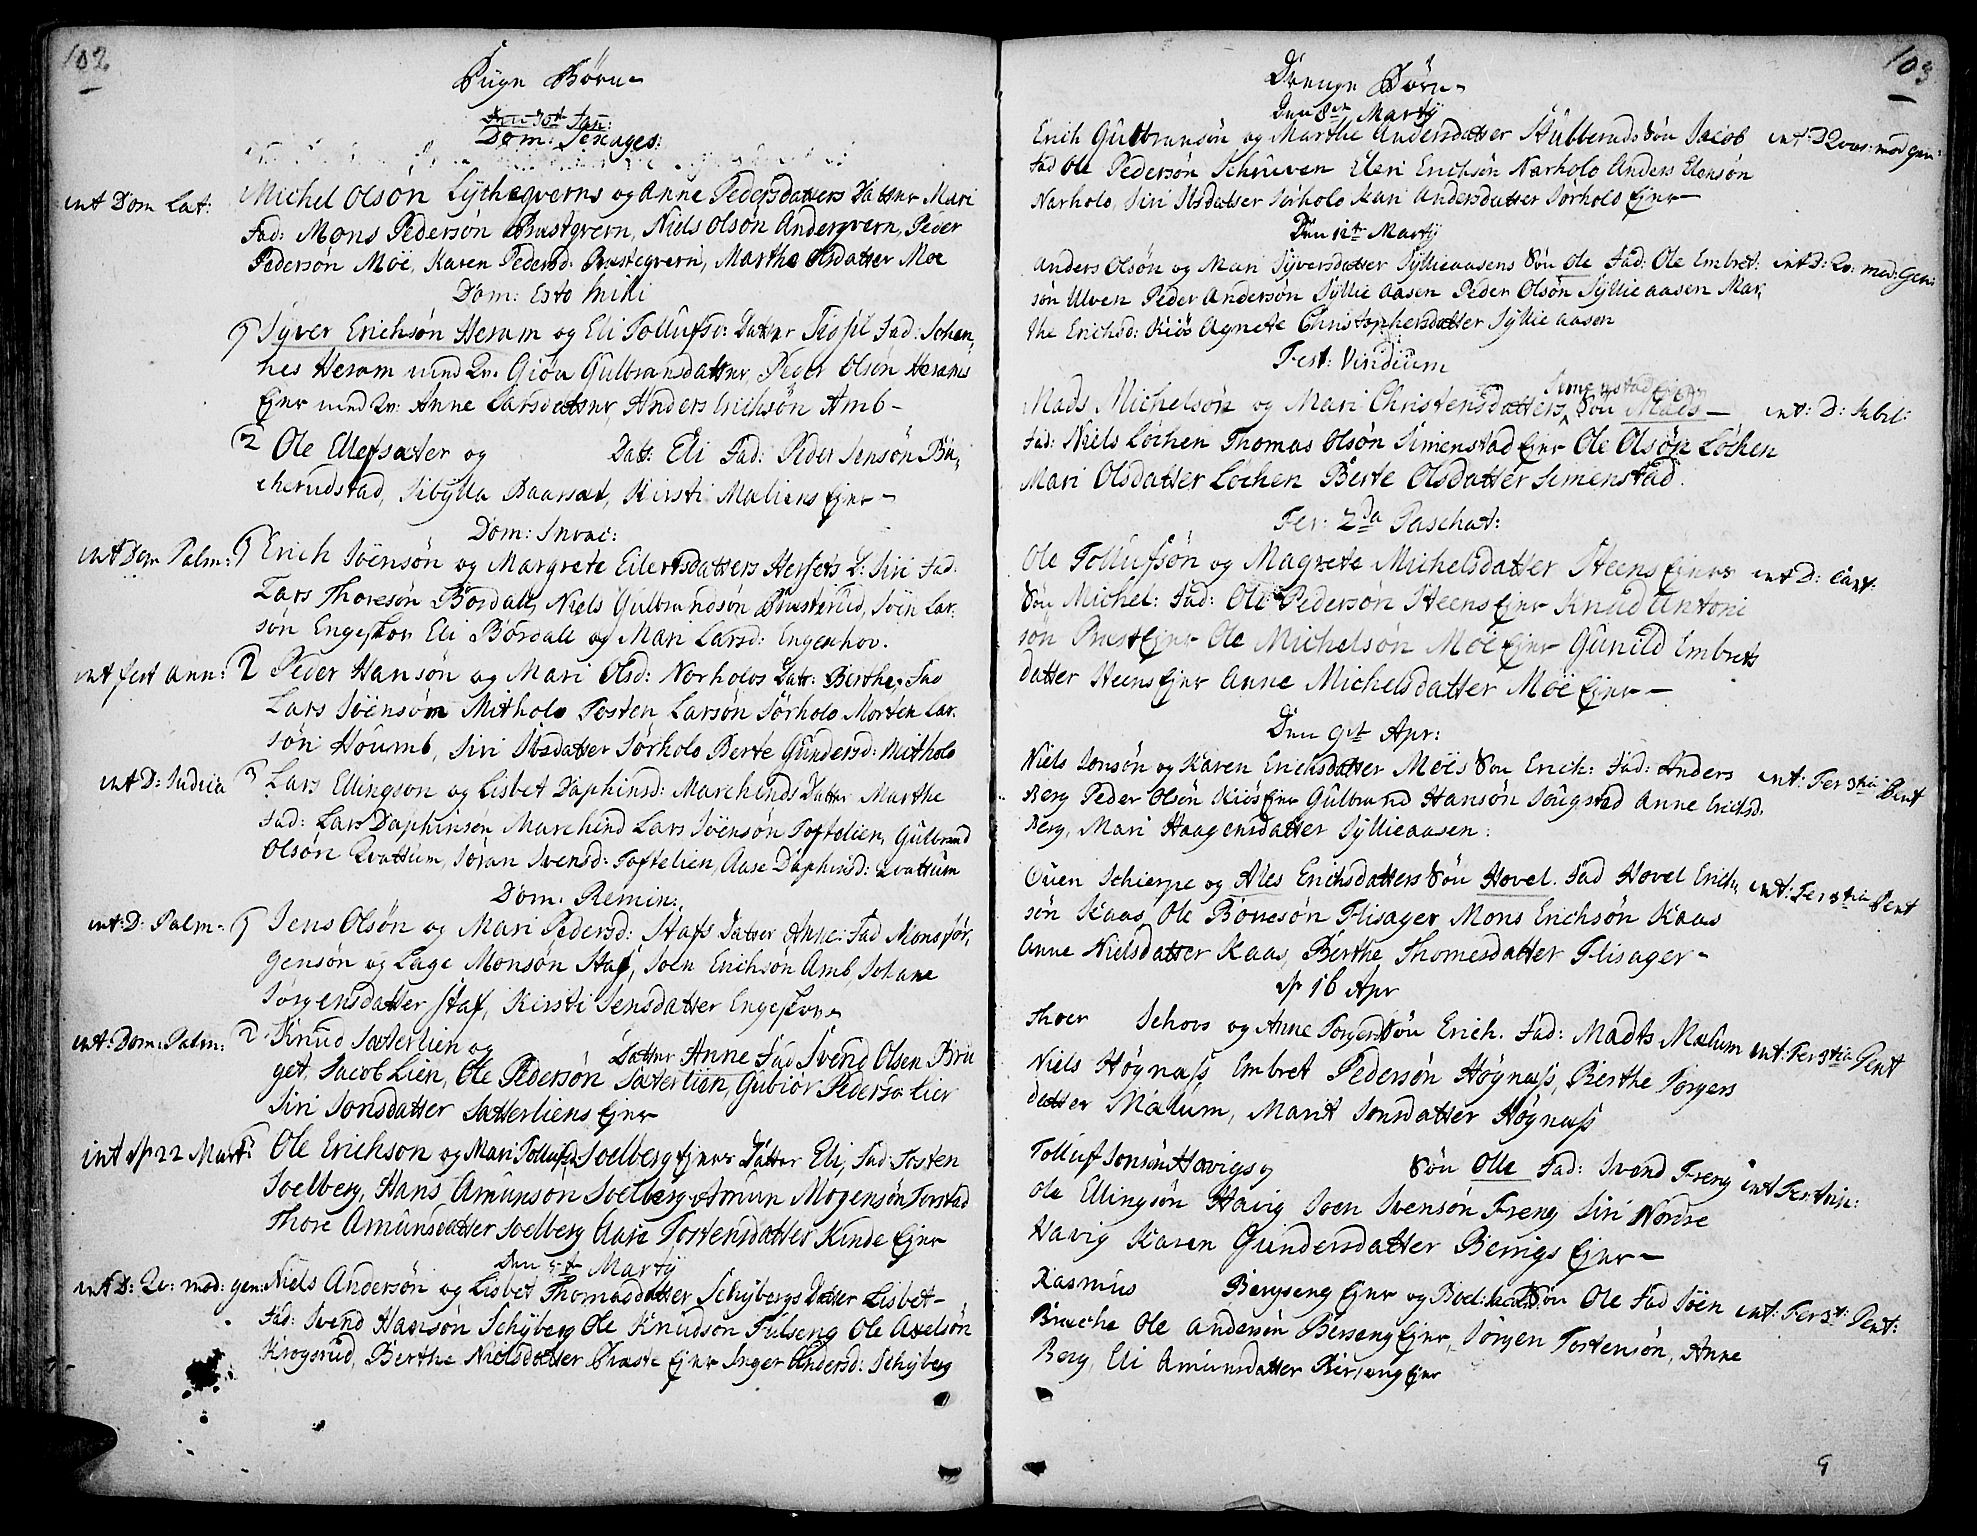 102
Piige Børn
Dom: Sexages:
int Dom Læt: Michel Olsøn Lycheqverns og Anne Pedersdatters Datter Mari
Fad: Mons Pedersøn Præstqvern, Niels Olsøn Anderqvern, Peder
Pedersøn Möe, Karen Pedersd. Præsteqvern, Marthe Olsdatter Moe
Dom: Esto Mihi
1 Syver Erichsøn Heram og Eli Tollufsd: Datter Sigsil Fad: Johan,
nes Heram med Qv. Giøa Gulbransdatter, Peder Olsøn Herams
Ejer med Qv: Anne Larsdatter, Anders Erichsøn Amb-
2 Ole Ellefsæter og Datt: Eli Fad: Peder Jensøn Bu,
cherudstad, Sibylla Daarsæt, Kirsti Maliens Ejer -
Dom: Invoc:
int Dom Palm: 1 Erich Jöensøn og Margrete Eilertsdatters Hersets D: Siri Fad.
Lars Thoresøn Børdal, Niels Gulbrandsøn Præsterud, Joen Lar,
søn Engeschov Eli Børdale og Mari Larsd: Engeshov.
int fest Ann: 2 Peder Hansøn og Mari Olsd: Norholos Datt: Berthe, Fad
Lars Jöensøn Mitholo Tosten Larsøn Sørholo Morten Lar,
søn Houmb, Siri Ibsdatter Sørholo Berte Gundersd: Mitholo
int D: Judica 3 Lars Ellingson og Lisbet Daphinsd: Marchinds Datter Marthe
Fad: Lars Daphinsøn Marchind Lars Jöensøn Toftelien, Gulbrand
Olsøn Qvattum, Søran Svensd: Toftelien, Aase Daphinsd: Qvattum
Dom: Remin:
int: D: Palm: 1 Jens Olsøn og Mari Pedersd: Stafs Datter Anne: Fad Mons Jør,
gensøn og Lage Monsøn Staf, Joen Erichsøn Amb, Johane
Jørgensdatter Staf, Kirsti Jensdatter Engeschov
int: Dom: Palm: 2 Knud Sæterlien og Datter Anne Fad Svend Olsen Bru
get, Jacob Lien, Ole Pedersøn Sæterlien, Gubiør Peders Lier
Siri Jonsdatter Sætterliens Ejer
int d 22 Mart: Ole Erichson og Mari Tollufsd: Soelberg Ejers Datter Eli, Fad: Tosten
Soelberg, Hans Amunsøn Soelberg Amun Mogensøn Torstad
Thore Amunsdatter Soelberg Aase Tostensdatter Kinde Ejer
Den 5t Martÿ
int D: Qv: mod: gen: Niels Andersøn og Lisbet Thomasdatter Schybergs Datter Lisbet -
Fad: Svend Hansøn Schyberg Ole Knudson Fulseng Ole Axelsøn
Krogsrud, Berthe Nielsdatter Præste Ejer Inger Andersd: Schyberg
103
Drenge Børn
Den 8de Martÿ
Erich Gulbransøn og Marthe Andersdatter Stubberuds Søn Jacob int: D Qvas: mod gen:
Fad Ole Pedersøn Schruven Eleri Erichsøn Narholo Anders Elensøn
Narholo, Siri Ibsdatter Sørholo Kari Andersdatter Sørholo Ejer -
Den 12te Martÿ
Anders Olsøn og Mari Syversdatter Syllieaasens Søn Ole Fad: Ole Embret: int D: Qv: mod: Gen:
søn Ulven Peder Andersøn Syllieaasen Peder Olsøn Syllieaasen Mar,
the Erichsd: Kiøs Agnete Christophersdatter Syllieaasen
Fest: Viridium
Mads Michelsøn og Mari Christensdatters Simenstad Søn Mads - int: D: Jubil:
Fad: Niels Løchen Thomas Olsøn Simenstad Ejer Ole Olsøn Løchen
Mari Olsdatter Løchen Berte Olsdatter Simenstad.
Fer: 2da Paschat:
Ole Tollufsøn og Magrete Michelsdatter Steens Ejers int D: Cant:
Søn Michel: Fad: Ole Pedersøn Steens Ejer Knud Antoni
søn Præst Ejer Ole Michelsøn Möe Ejer Gunild Embrets
datter Steens Ejer Anne Michelsdatter Möe Ejer -
Den 9de Apr:
Niels Jonsøn og Karen Erichsdatter Möes Søn Erich: Fad: Anders int: Fer 3tia Pent
Berg Peder Olsøn Kiøs Ejer Gulbrand Hansøn Sougstad Anne Erichsd.
Berg, Mari Haagensdatter Syllieaasen:
Ouen Schierpe og Ales Erichsdatters Søn Hovel. Fad Hovel Erich, int: Fer 3tia Pent
søn Kaas, Ole Bovesøn Flisager Mons Erichsøn Kaas
Anne Nielsdatter Kaas, Berthe Thomesdatter Flisager -
d 16 Apr
Thoer Schovs og Anne Torgers Søn Erich. Fad: Madts Mælum int: Fer 3tia Pent
Niels Høgnæss Embret Pedersøn Høgnæss, Berthe Torgers
datter Mælum, Marit Jonsdatter Høgnæss
Tolluf Jonsøn Havigs og Søn Olle Fad: Svend Freng int Fer
Ole Ellingsøn Havig Joen Svensøn Freng Siri Nordre
Havig Karen Gundersdatter Berrigs Ejer -
Rasmus Bergseng Ejer og Boel: Søn Ole Fad Jöen int: Fer 3t: Pent:
Bræche Ole Andersøn Berseng Ejer, Jørgen Tostensøn, Anne
Berg, Eli Amunsdatter Berseng Ejer